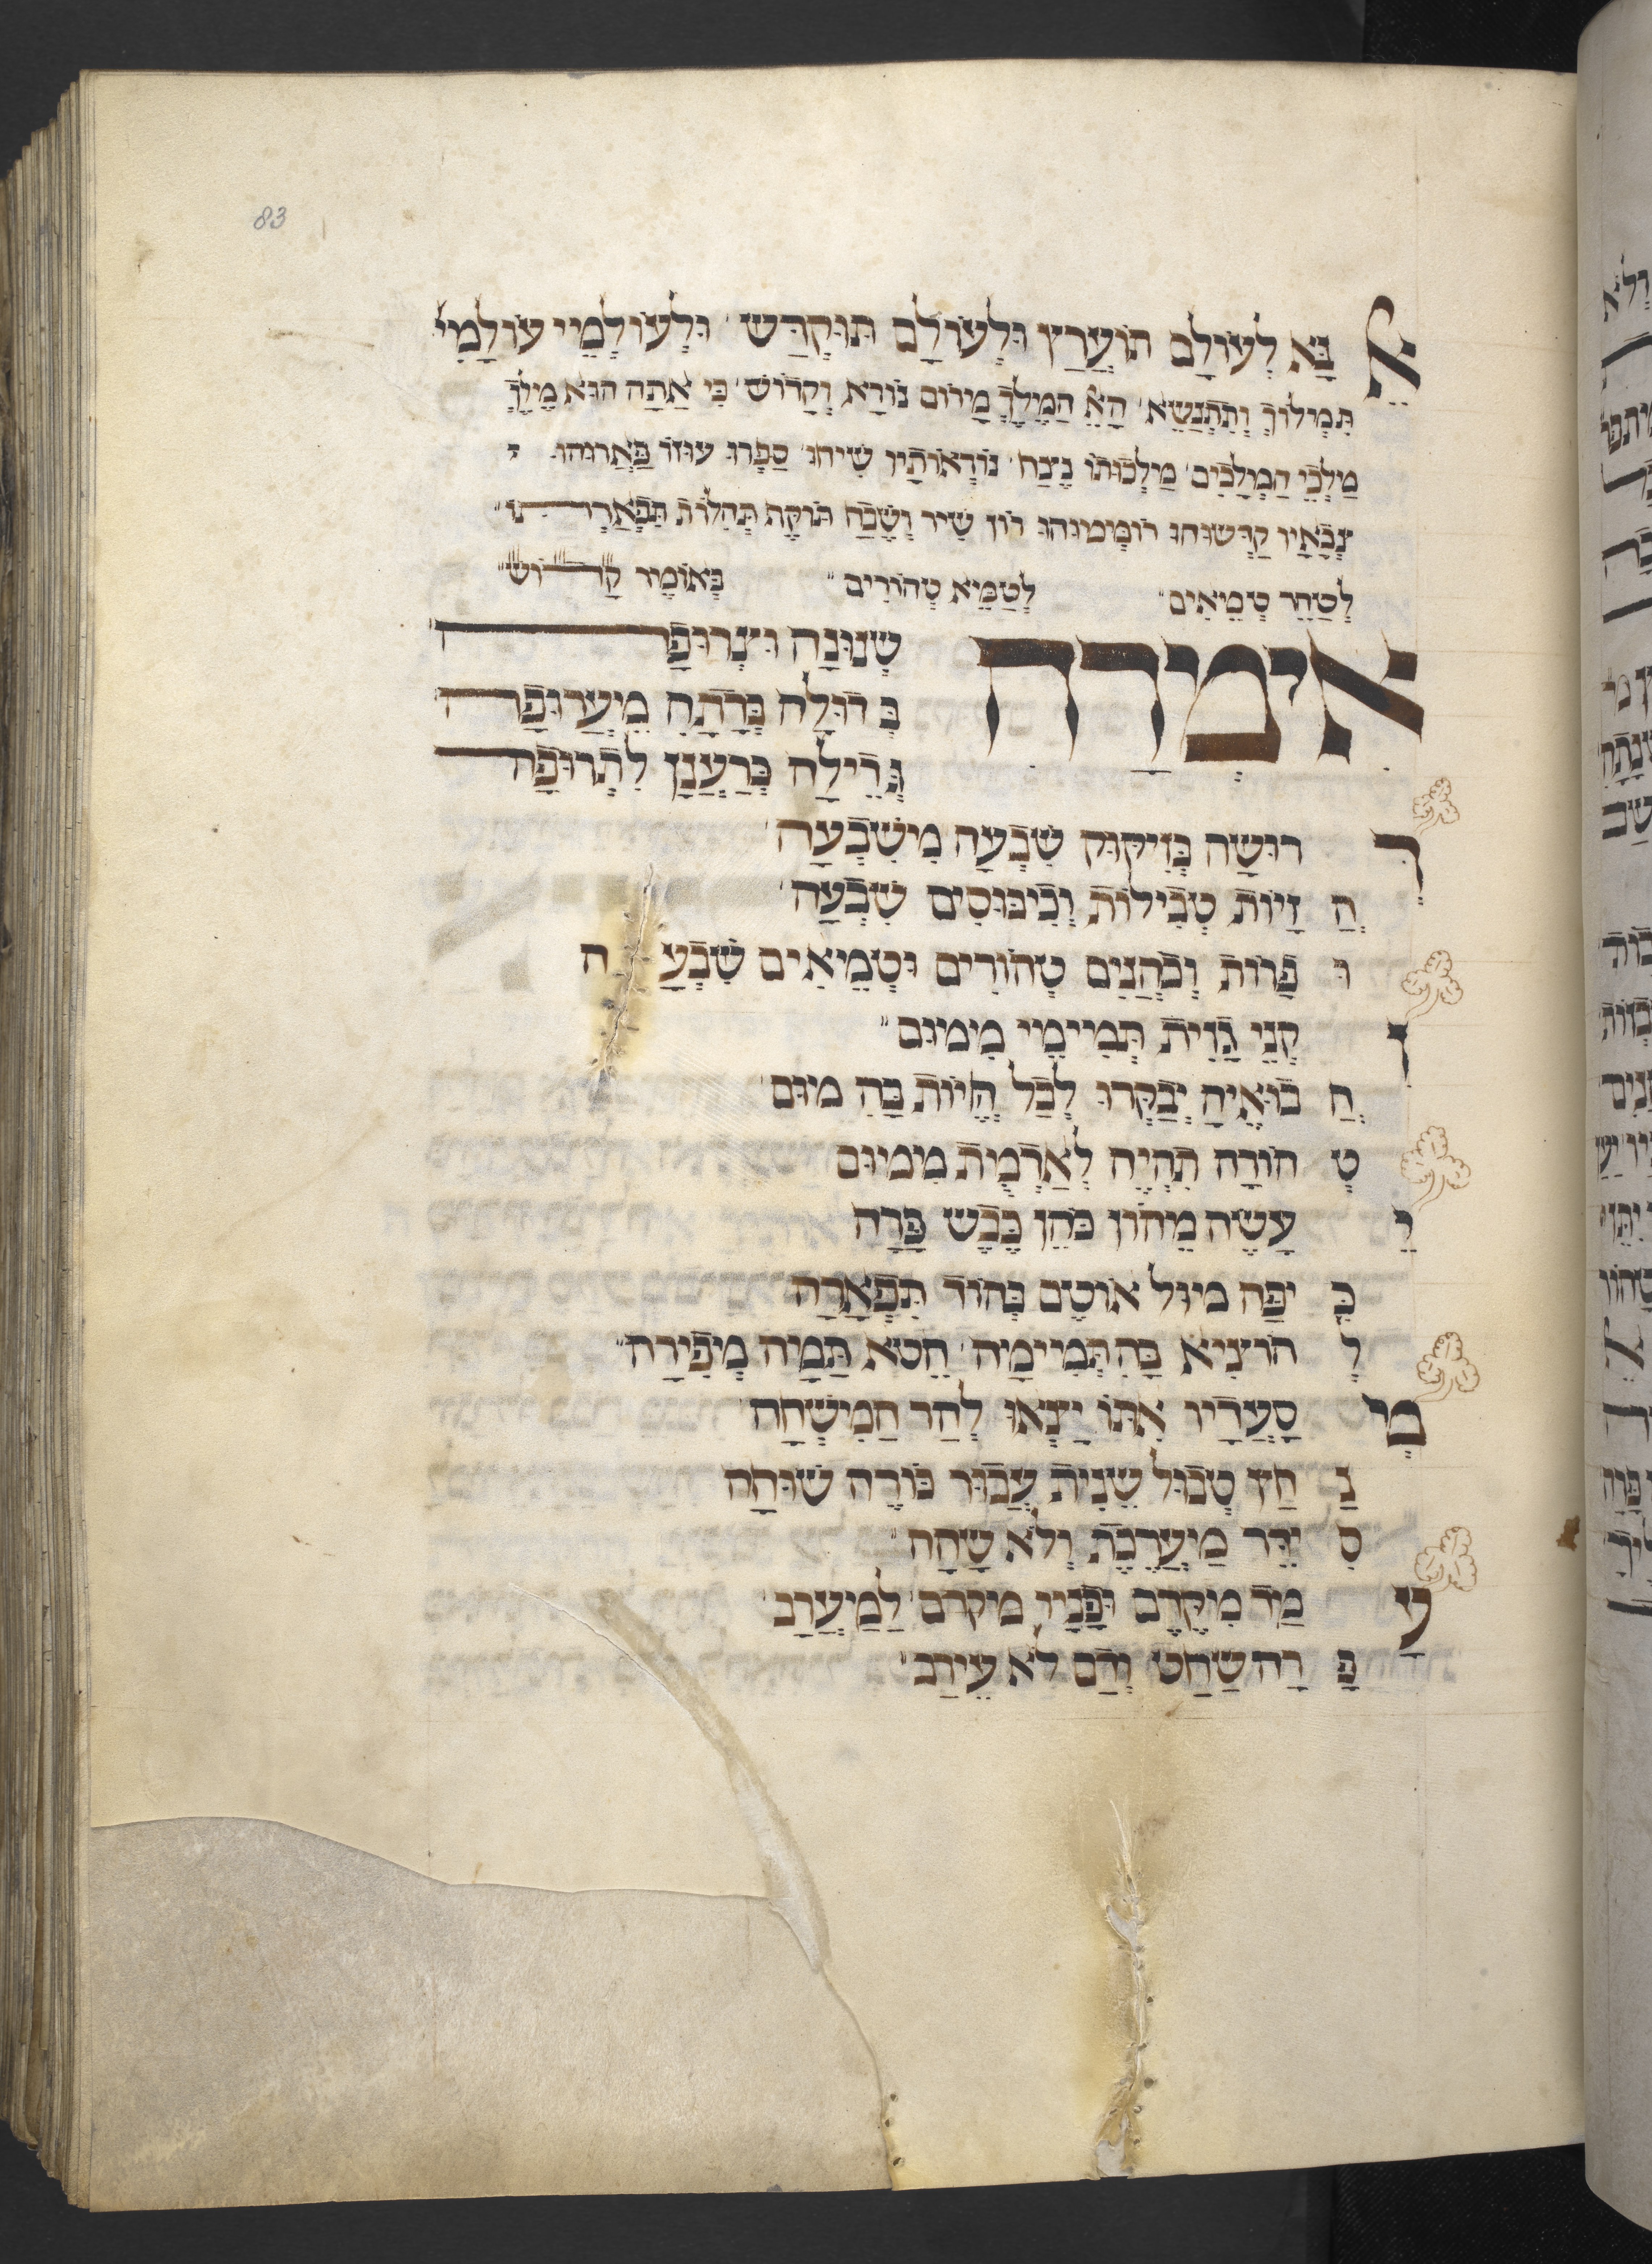 83
אֵל נָּא לְעוֹלָם תּוֹעֲרַץ וּלְעוֹלָם תּוּקְדַּשׁ וּלְעוֹלְמֵי עוֹלָמִי
תִּמְלוֹךְ וְתִתְנַשֵּׂא הָאֵל הַמֶּלֶךְ מָרוֹם נוֹרָא וְקָדוֹשׁ כִּי אַתָּה הוּא מֶלֶךְ
מַלְכֵי הַמְּלָכִים מַלְכוּתוֹ נֶצַח נוֹרְאוֹתָיו שִׂיחוּ סַפְּרוּ עוּזּוֹ פַּאֲרוּהוּ
צְבָאָיו קַדְּשׁוּהוּ רוֹמְמוּהוּ רוֹן שִׁיר וְשֶׁבַח תּוֹקֶף תְּהִלּוֹת תִּפְאַרְתּוֹ
לְטַהֵר טְמֵאִים לְטַמֵּא טְהוֹרִים כְּאוֹמֶר קָדוֹשׁ
אִימְרָה שְׁנוּנָה וּצְרוּפָה
בְּדוּלָה כְּדָתָהּ מֵיעֲרוּפָה
גְּדֵילָה כְּרַעֲנָן לִתְרוּפָה
דְּרוּשָׁה כְּזִיקּוּק שִׁבְעָה מִשִּׁבְעָה
הַזָּיוֹת טְבִילוֹת וְכִיבּוּסִים שִׁבְעָה
וּפָרוֹת וְכֹהֲנִים טְהוֹרִים וּטְמֵאִים שִׁבְעָה
זִקְנֵי גָזִית תְּמִימֵי מִמּוּם
חֲבוּאֶיהָ יְבַקְּרוּ לְבַל הֱיוֹת בָּהּ מוּם
טְהוֹרָה תִהְיֶה לְאַדְמַת מִמּוּם
יֵעָשֶׂה מֵהוֹן כֹּהֵן כֶּבֶשׁ פָּרָה
כִּיפָּה מוּל אוּטָם כְּהוֹד תִּפְאָרָה
לְהוֹצִיא בָּהּ תְּמִימָה חֵטְא תַּמָּה מְפִירָה
מְסָעֲדָיו אִתּוֹ יָצְאוּ לְהַר הַמִּשְׁחָה
נַחַץ טְבוֹל שֵׁנִית עֲבוּר כּוֹרֶה שׁוּחָה
סִידֵּר מַיעֲרֶכֶת וְלֹא שָׁחָה
עָמַד מִקֶּדֶם וּפָנָיו מקדם לַמַּעֲרָב
פָּרָה שָׁחַט וְדַם לֹא עֵירַב